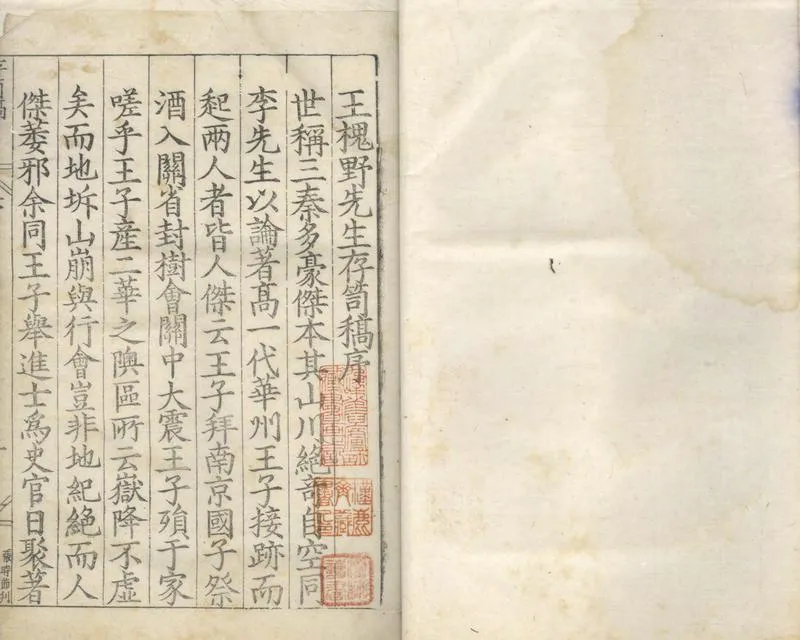 王槐野先生存笥稿序
世稱三秦多豪傑本其山川絕竒自空同
李先生以論著髙一代華州王子接跡而
起兩人者皆人傑云王子拜南京國子祭
酒入關省封樹會關中大震王子殞于家
嗟乎王子産二華之隩區所云嶽降不虛
矣而地坼山崩與行會豈非地紀絕而人
傑萎邪余同王子舉進士爲史官日聚著